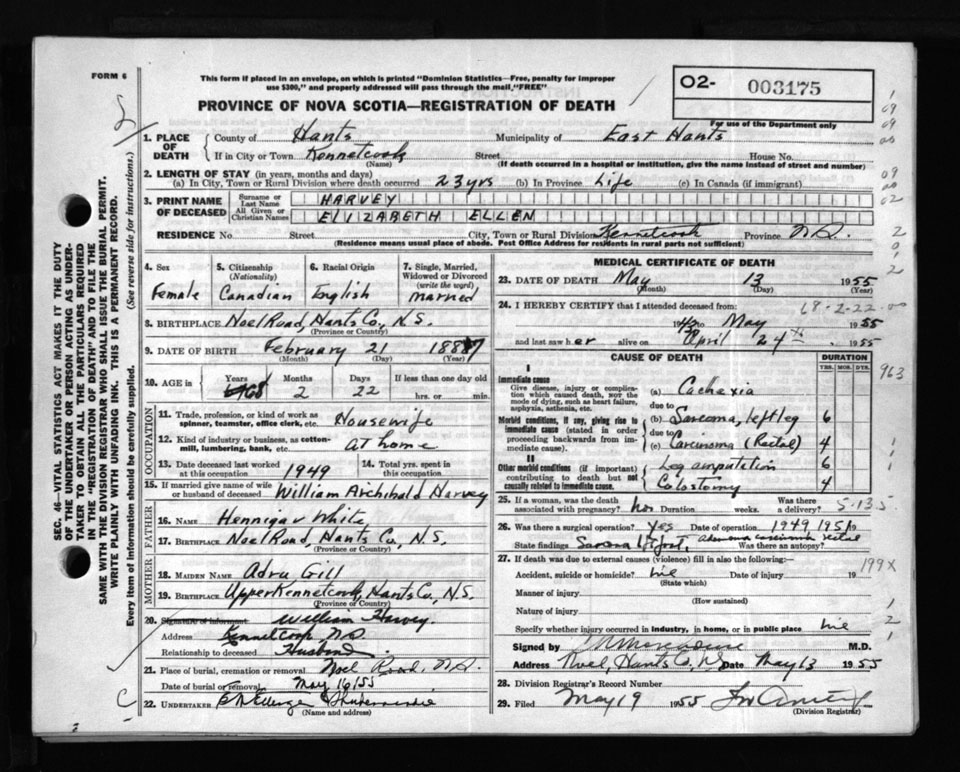 FORM 6
This form if placed in an envelope, on which is printed "Dominion Statistics—Free, penalty for improper
use $300," and properly addressed will pass through the mail, "FREE"
PROVINCE OF NOVA SCOTIA—REGISTRATION OF DEATH
O2- 003175
For use of the Department only
1. PLACE OF DEATH County of Hants Municipality of East Hants
If in City or Town Kennetcook Street House No.
(Name) (If death occurred in a hospital or institution, give the name instead of street and number)
2. LENGTH OF STAY (in years, months and days)
(a) In City, Town or Rural Division where death occurred 23 yrs (b) In Province Life (c) In Canada (if immigrant)
3. PRINT NAME OF DECEASED Surname or Last Name HARVEY
All Given or Christian Names ELIZABETH ELLEN
RESIDENCE No. Street City, Town or Rural Division Kennetcook Province N.S.
(Residence means usual place of abode. Post Office Address for residents in rural parts not sufficient)
4. Sex Female
5. Citizenship (Nationality) Canadian
6. Racial Origin English
7. Single, Married, Widowed or Divorced (write the word) married
8. BIRTHPLACE Noel Road, Hants Co., N.S.
(Province or Country)
9. DATE OF BIRTH February 21 1887
(Month) (Day) (Year)
10. AGE in Years 68 Months 2 Days 22 If less than one day old
hrs. or min.
OCCUPATION
11. Trade, profession, or kind of work as spinner, teamster, office clerk, etc. Housewife
12. Kind of industry or business, as cotton-mill, lumbering, bank, etc. at home
13. Date deceased last worked at this occupation 1949 14. Total yrs. spent in this occupation
15. If married give name of wife or husband of deceased William Archibald Harvey
FATHER
16. NAME Hennigar White
17. BIRTHPLACE Noel Road, Hants Co., N.S.
(Province or Country)
MOTHER
18. MAIDEN NAME Adru Gill
19. BIRTHPLACE Upper Kennetcook, Hants Co., N.S.
(Province or Country)
20. Signature of informant William Harvey
Address Kennetcook N.S.
Relationship to deceased Husband
21. Place of burial, cremation or removal Noel Road, N.S.
Date of burial or removal May 16/55
22. UNDERTAKER
(Name and address)
MEDICAL CERTIFICATE OF DEATH
23. DATE OF DEATH May 13 1955
(Month) (Day) (Year)
24. I HEREBY CERTIFY that I attended deceased from:
68-2-22
to May 1955
and last saw her alive on April 24th, 1955
CAUSE OF DEATH
DURATION
YRS. MOS. DYS.
963
I
Immediate cause
Give disease, injury or complication which caused death, NOT the mode of dying, such as heart failure, asphyxia, asthenia, etc.
(a) Cachexia
due to
Morbid conditions, if any, giving rise to immediate cause (stated in order proceeding backwards from immediate cause).
(b) Sarcoma, left leg 6
due to
(c) Carcinoma (Rectal) 4
II
Other morbid conditions (if important) contributing to death but not causally related to immediate cause.
Leg amputation 6
Colostomy 4
25. If a woman, was the death associated with pregnancy? no Duration weeks. Was there a delivery?
5-13-5
26. Was there a surgical operation? yes Date of operation 1949 1951 19
State findings Was there an autopsy?
27. If death was due to external causes (violence) fill in also the following:-
199X
Accident, suicide or homicide? nil Date of injury 19
(State which)
Manner of injury
(How sustained)
Nature of injury
Specify whether injury occurred in industry, in home, or in public place nil
Signed by M.D.
Address Noel, Hants Co., N.S. Date May 13 1955
28. Division Registrar's Record Number
29. Filed May 19 1955
(Division Registrar)
SEC. 46—VITAL STATISTICS ACT MAKES IT THE DUTY
OF THE UNDERTAKER OR PERSON ACTING AS UNDER-
TAKER TO OBTAIN ALL THE PARTICULARS REQUIRED
IN THE "REGISTRATION OF DEATH" AND TO FILE THE
SAME WITH THE DIVISION REGISTRAR WHO SHALL ISSUE THE BURIAL PERMIT.
WRITE PLAINLY WITH UNFADING INK. THIS IS A PERMANENT RECORD.
Every item of information should be carefully supplied. (See reverse side for instructions.)